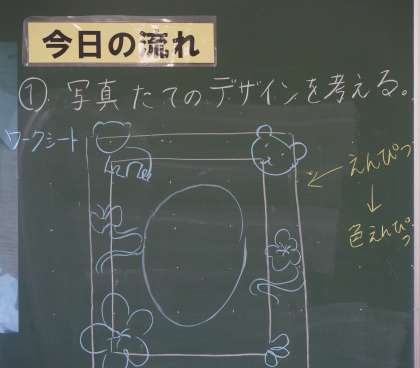 今日の流れ
① 写真たてのデザインを考える。
ワークシート
えんぴつ
↓
色えんぴつ